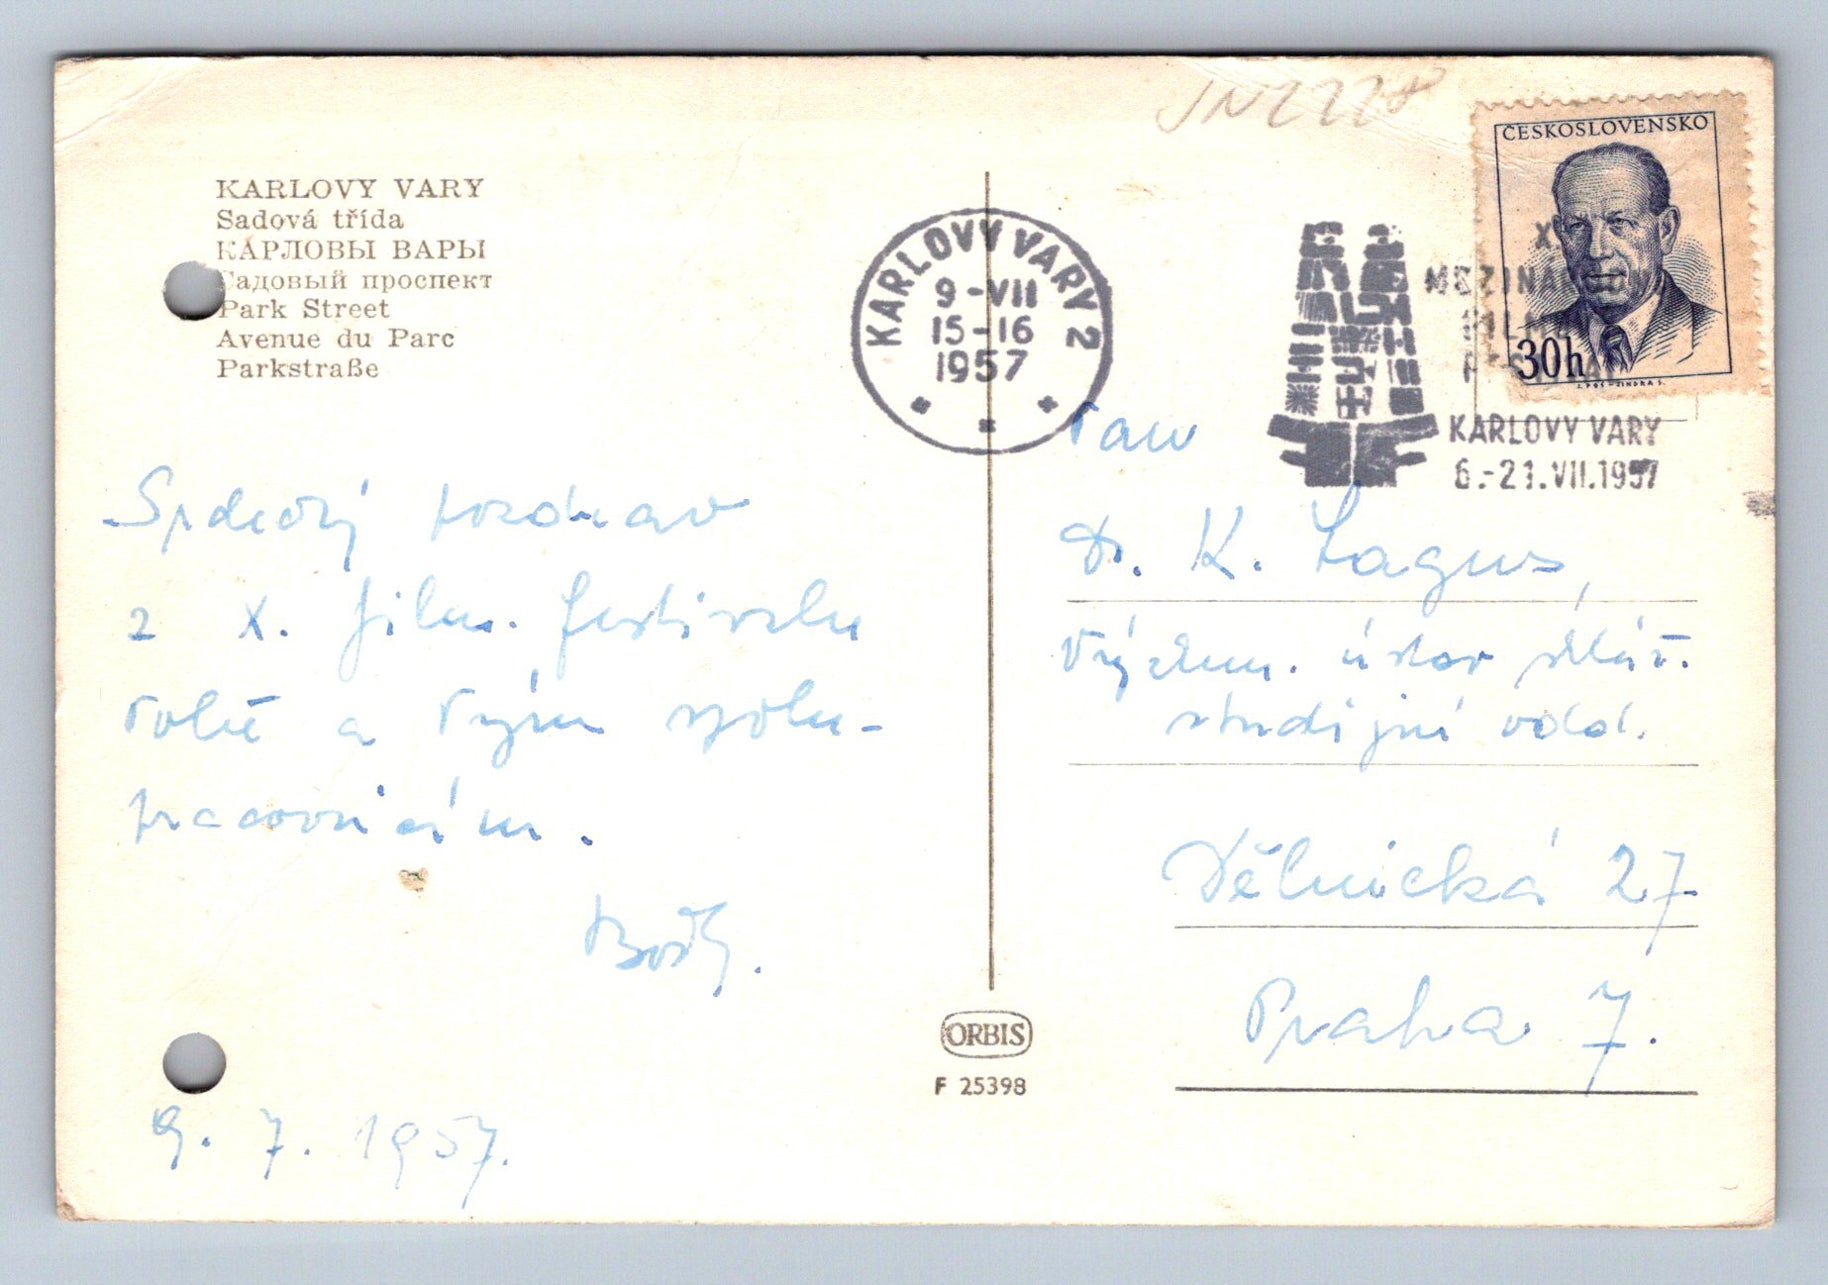 JN2228
KARLOVY VARY
Sadová třída
КАРЛОВЫ ВАРЫ
Садовый проспект
Park Street
Avenue du Parc
Parkstraße
KARLOVY VARY 2
9-VII
15-16
1957
ČESKOSLOVENSKO
30h
X
MEZINÁRODNÍ
FILMOVÝ
FESTIVAL
KARLOVY VARY
6.-21.VII.1957
Srdečný pozdrav
z X. film. festivalu
Tobě a Tvým spolu-
pracovnicím.
9. 7. 1957.
Pan
Dr. K. Lagus,
Výzkum. ústav sklář.
studijní odd.
Dělnická 27
Praha 7.
ORBIS
F 25398